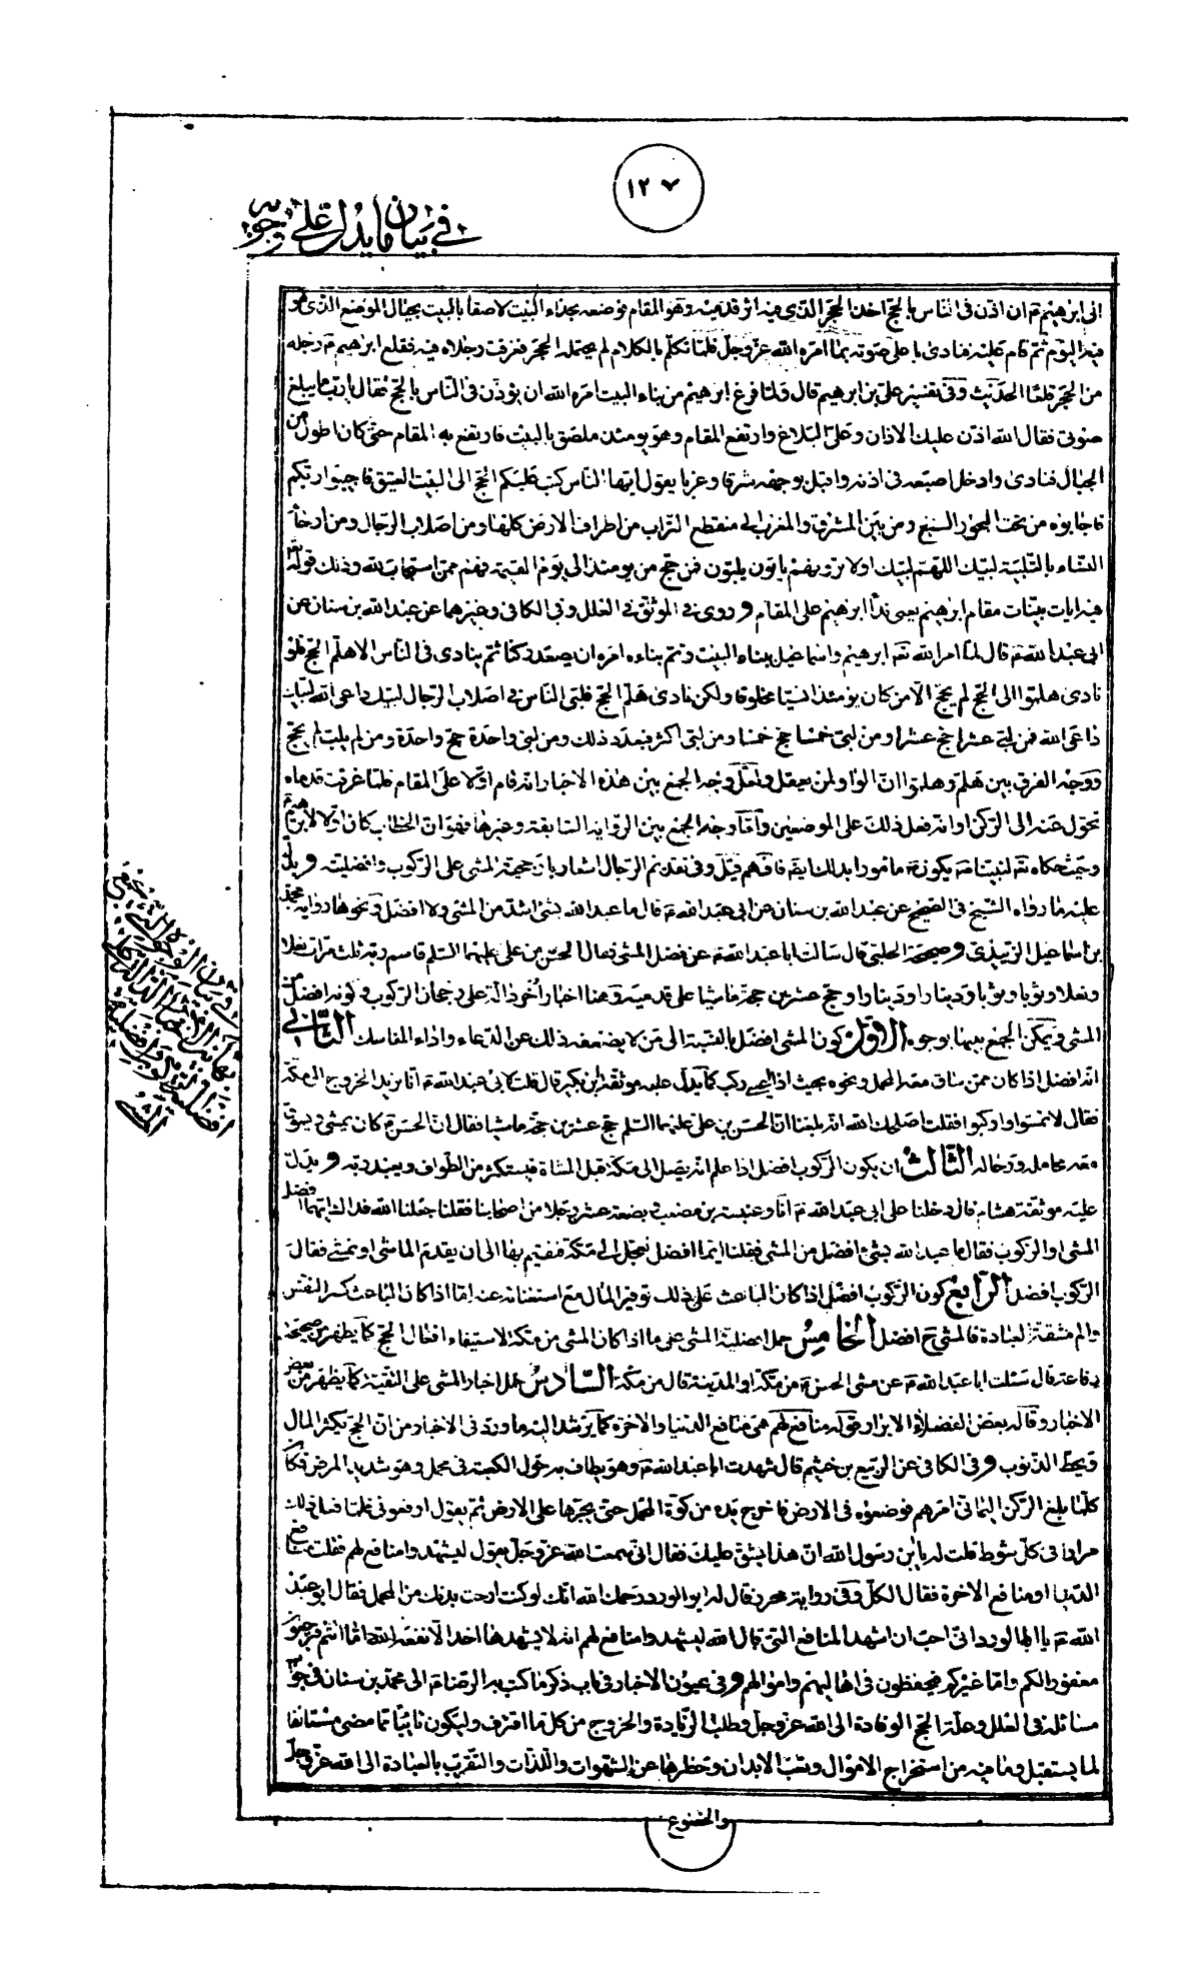 ١٢٧
في بيان ما يدل على وجوبه
الى ابرهيم ع ان اذن فى الناس بالحج اخذ الحجر الذى فيه اثر قدميه وهو المقام فوضعه بحذاء البيت لاصقا بالبيت بحيال الموضع الذى هو
فيه اليوم ثم قام عليه فنادى باعلى صوته بما امره الله عز وجل فلما تكلم بالكلام لم يحتمله الحجر فغرقت رجلاه فيه فقلع ابرهيم ع رجله
من الحجر قلعا الحديث وفى تفسير على بن ابرهيم قال ولما فرغ ابرهيم من بناء البيت امره الله ان يؤذن فى الناس بالحج فقال يا رب ما يبلغ
صوتى فقال الله اذن عليك الاذان وعلى البلاغ وارتفع المقام وهو يومئذ ملصق بالبيت فارتفع به المقام حتى كان اطول من
الجبال فنادى وادخل اصبعه فى اذنه واقبل بوجهه شرقا وغربا يقول ايها الناس كتب عليكم الحج الى البيت العتيق فاجيبوا ربكم
فاجابوه من تحت البحور السبع ومن بين المشرق والمغرب الى منقطع التراب من اطراف الارض كلها ومن اصلاب الرجال ومن ارحام
النساء بالتلبية لبيك اللهم لبيك اولا ترونهم ياتون يلبون فمن حج من يومئذ الى يوم القيمة فهم ممن استجاب لله وذلك قوله تعا
فيه ايات بينات مقام ابرهيم يعنى نداء ابرهيم على المقام وروى فى الموثق فى العلل وفى الكافى وغيرهما عن عبد الله بن سنان عن
ابى عبد الله ع قال لما امر الله تعه ابرهيم واسماعيل ببناء البيت وتم بناءه امره ان يصعد ركنا ثم ينادى فى الناس الا هلم الحج فلو
نادى هلموا الى الحج لم يحج الا من كان يومئذ انسيا مخلوقا ولكن نادى هلم الحج فلبى الناس فى اصلاب الرجال لبيك داعى الله لبيك
داعى الله فمن لبى عشرا حج عشرا ومن لبى خمسا حج خمسا ومن لبى اكثر فبعدد ذلك ومن لبى واحدة حج واحدة ومن لم يلب لم يحج
ووجه الفرق بين هلم وهلموا ان الواو لمن يعقل ولعل وجه الجمع بين هذه الاخبار انه قام اولا على المقام فلما غرقت قدماه
تحول عنه الى الركن او انه فعل ذلك على الموضعين واما وجه الجمع بين الرواية السابقة وغيرها فهو ان الخطاب كان اولا لابرهيم
وحيث حكاه تعه لنبيه ص يكون ص مامورا بذلك ايضه فافهم قيل وفى تقديم الرجال اشعار بارجحية المشى على الركوب وافضليته ويدل
عليه ما رواه الشيخ فى الصحيح عن عبد الله بن سنان عن ابى عبد الله ع قال ما عبد الله بشئ اشد من المشى ولا افضل ونحوها رواية محمد
بن اسماعيل الزبيدى وصحيحة الحلبى قال سالت ابا عبد الله ع عن فضل المشى فقال الحسن بن على عليهما السلم قاسم ربه ثلث مرات نعلا
ونعلا وثوبا وثوبا ودينارا ودينارا وحج عشرين حجة ماشيا على قدميه وهنا اخبار اخر دالة على رجحان الركوب فى كونه افضل من
المشى ويمكن الجمع بينها بوجوه الاول كون المشى افضل بالنسبة الى من لا يضعفه ذلك عن الدعاء واداء المناسك الثانى
انه افضل اذا كان ممن ساق معه المحمل ونحوه بحيث اذا اعيى ركب كما يدل عليه موثقة ابن بكير قال قلت لابى عبد الله ع انا نريد الخروج الى مكة
فقال لا تمشوا واركبوا فقلت اصلحك الله انه بلغنا ان الحسن بن على عليهما السلم حج عشرين حجة ماشيا فقال ان الحسن ع كان يمشى ويسوق
معه محامله ورحاله الثالث ان يكون الركوب افضل اذا علم انه يصل الى مكة قبل المشاة فيستكثر من الطواف ويعبد ربه ويدل
عليه موثقة هشام قال دخلنا على ابى عبد الله ع انا وعنبسة بن مصعب وبضعة عشر رجلا من اصحابنا فقلنا جعلنا الله فداك ايهما افضل
المشى او الركوب فقال ما عبد الله بشئ افضل من المشى فقلنا ايما افضل نعجل الى مكة فنقيم بها الى ان يقدم الماشى او نمشى فقال
الركوب افضل الرابع كون الركوب افضل اذا كان الباعث على ذلك توفير المال مع استغنائه عنه اما اذا كان الباعث كسر النفس
والم مشقة العبادة فالمشى ح افضل الخامس حمل افضلية المشى على ما اذا كان المشى من مكة لاستيفاء افعال الحج كما يظهر من صحيحة
رفاعة قال سئلت ابا عبد الله ع عن مشى الحسن ع من مكة او المدينة قال من مكة السادس حمل اخبار المشى على التقية كما يظهر من بعض
الاخبار وقاله بعض الفضلاء الابرار وقوله منافع لهم هى منافع الدنيا والاخرة كما يرشد اليه ما ورد فى الاخبار من ان الحج يكثر المال
ويحط الذنوب وفى الكافى عن الربيع بن خثيم قال شهدت ابا عبد الله ع وهو يطاف به حول الكعبة فى محمل وهو شديد المرض فكان
كلما بلغ الركن اليمانى امرهم فوضعوه فى الارض فاخرج يده من كوة المحمل حتى يجرها على الارض ثم يقول ارفعونى فلما فعل ذلك
مرارا فى كل شوط قلت له يا ابن رسول الله ان هذا يشق عليك فقال انى سمعت الله عز وجل يقول ليشهدوا منافع لهم فقلت منافع
الدنيا او منافع الاخرة فقال الكل وفى رواية اخرى قال له ابو الورد رحمك الله انك لو كنت ارحت بدنك من المحمل فقال ابو عبد
الله ع يا ابا الورد انى احب ان اشهد المنافع التى قال الله ليشهدوا منافع لهم انه لا يشهدها احد الا نفعه الله اما انتم فترجعون
مغفورا لكم واما غيركم فيحفظون فى اهاليهم واموالهم وفى عيون الاخبار فى باب ذكر ما كتب به الرضا ع الى محمد بن سنان فى جواب
مسائله فى العلل وعلة الحج الوفادة الى الله عز وجل وطلب الزيادة والخروج من كل ما اقترف وليكون تائبا مما مضى مستانفا
لما يستقبل وما فيه من استخراج الاموال وتعب الابدان وحظرها عن الشهوات واللذات والتقرب بالعبادة الى الله عز وجل
والخضوع